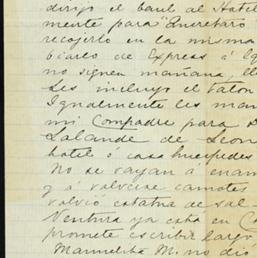 dirijo el baul al Hotel
mente para Queretaro
recojerlo en la misma
biarlo de Express á Ig
no siguen mañana, ll
Les incluyo el talon
Igualmente les man
mi Compadre para D
Lalande de Leon
hotel ó casa huespedes
No se vayan a enam
y á volverse camotes
volvió estatua de sal
Ventura ya está en C
promete escribir largo
Manuelita M. no dio